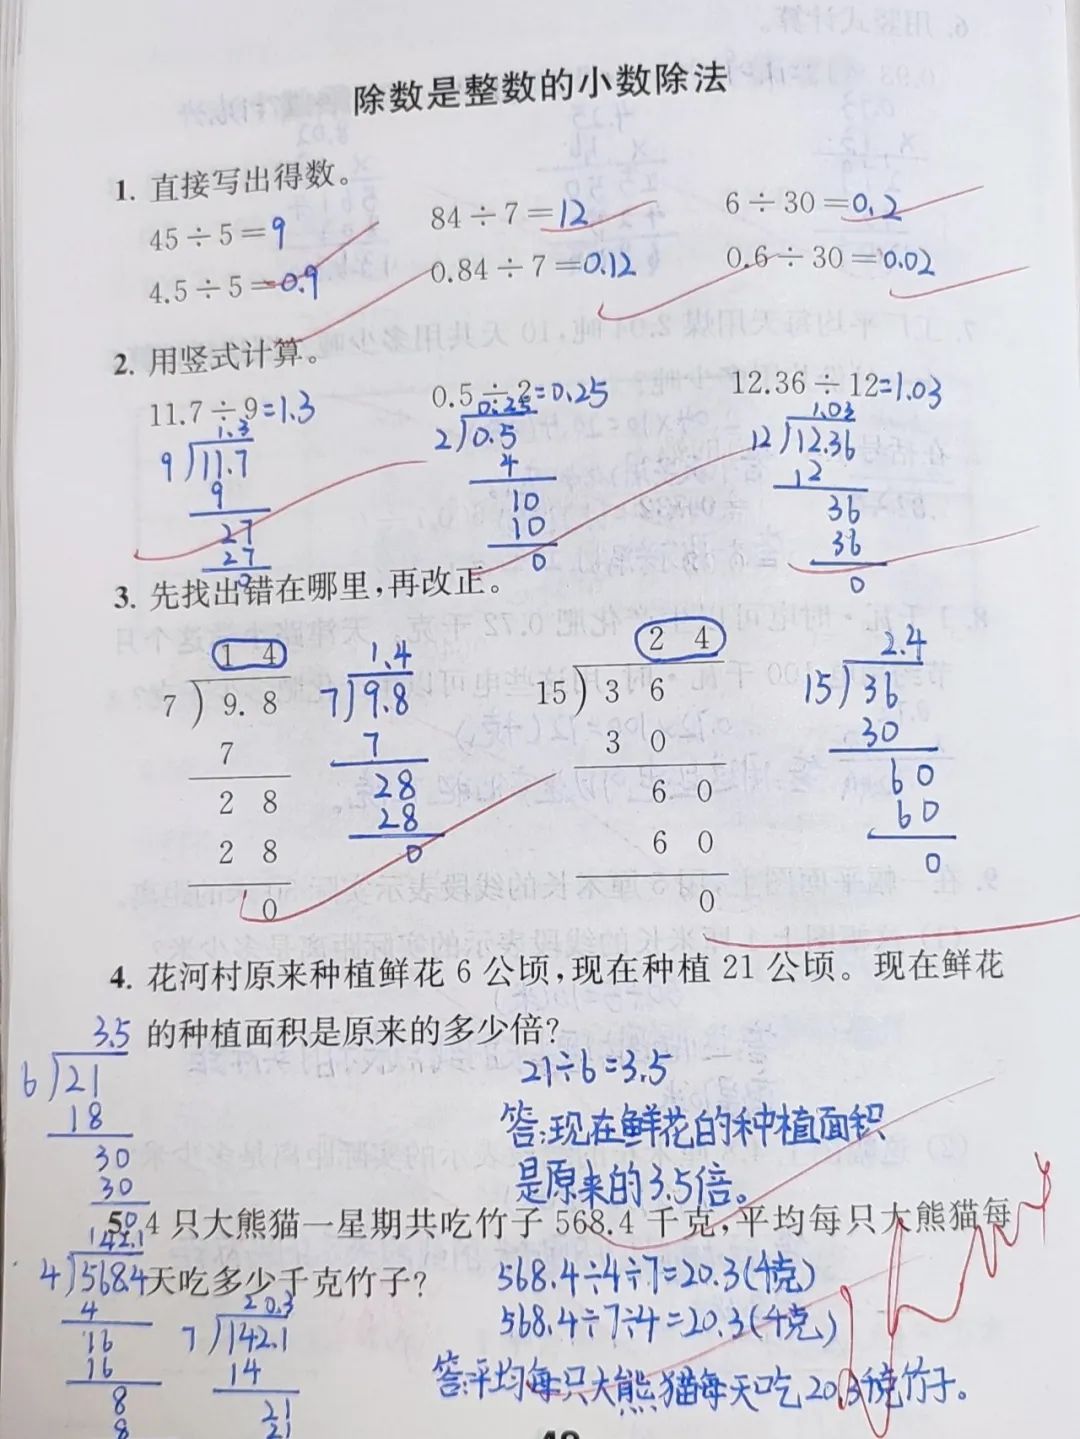 除数是整数的小数除法
1. 直接写出得数。
45÷5=9 84÷7=12 6÷30=0.2
4.5÷5=0.9 0.84÷7=0.12 0.6÷30=0.02
2. 用竖式计算。
11.7÷9=1.3 0.5÷2=0.25 12.36÷12=1.03
1.3 0.25 1.03
9 11.7 2 0.5 12 12.36
9 4 12
27 10 36
27 10 36
0 0 0
3. 先找出错在哪里,再改正。
1 4 1.4 2 4 2.4
7 9.8 7 9.8 15 3 6 15 36
7 7 3 0 30
2 8 28 6 0 60
2 8 28 6 0 60
0 0 0 0
4. 花河村原来种植鲜花 6 公顷,现在种植 21 公顷。现在鲜花
的种植面积是原来的多少倍?
3.5
6 21
18
30
30
0
21÷6=3.5
答:现在鲜花的种植面积
是原来的3.5倍。
5. 4 只大熊猫一星期共吃竹子 568.4 千克,平均每只大熊猫每
天吃多少千克竹子?
142.1
4 568.4
4
16
16
8
8
20.3
7 142.1
14
21
21
568.4÷4÷7=20.3(千克)
568.4÷7÷4=20.3(千克)
答:平均每只大熊猫每天吃20.3千克竹子。